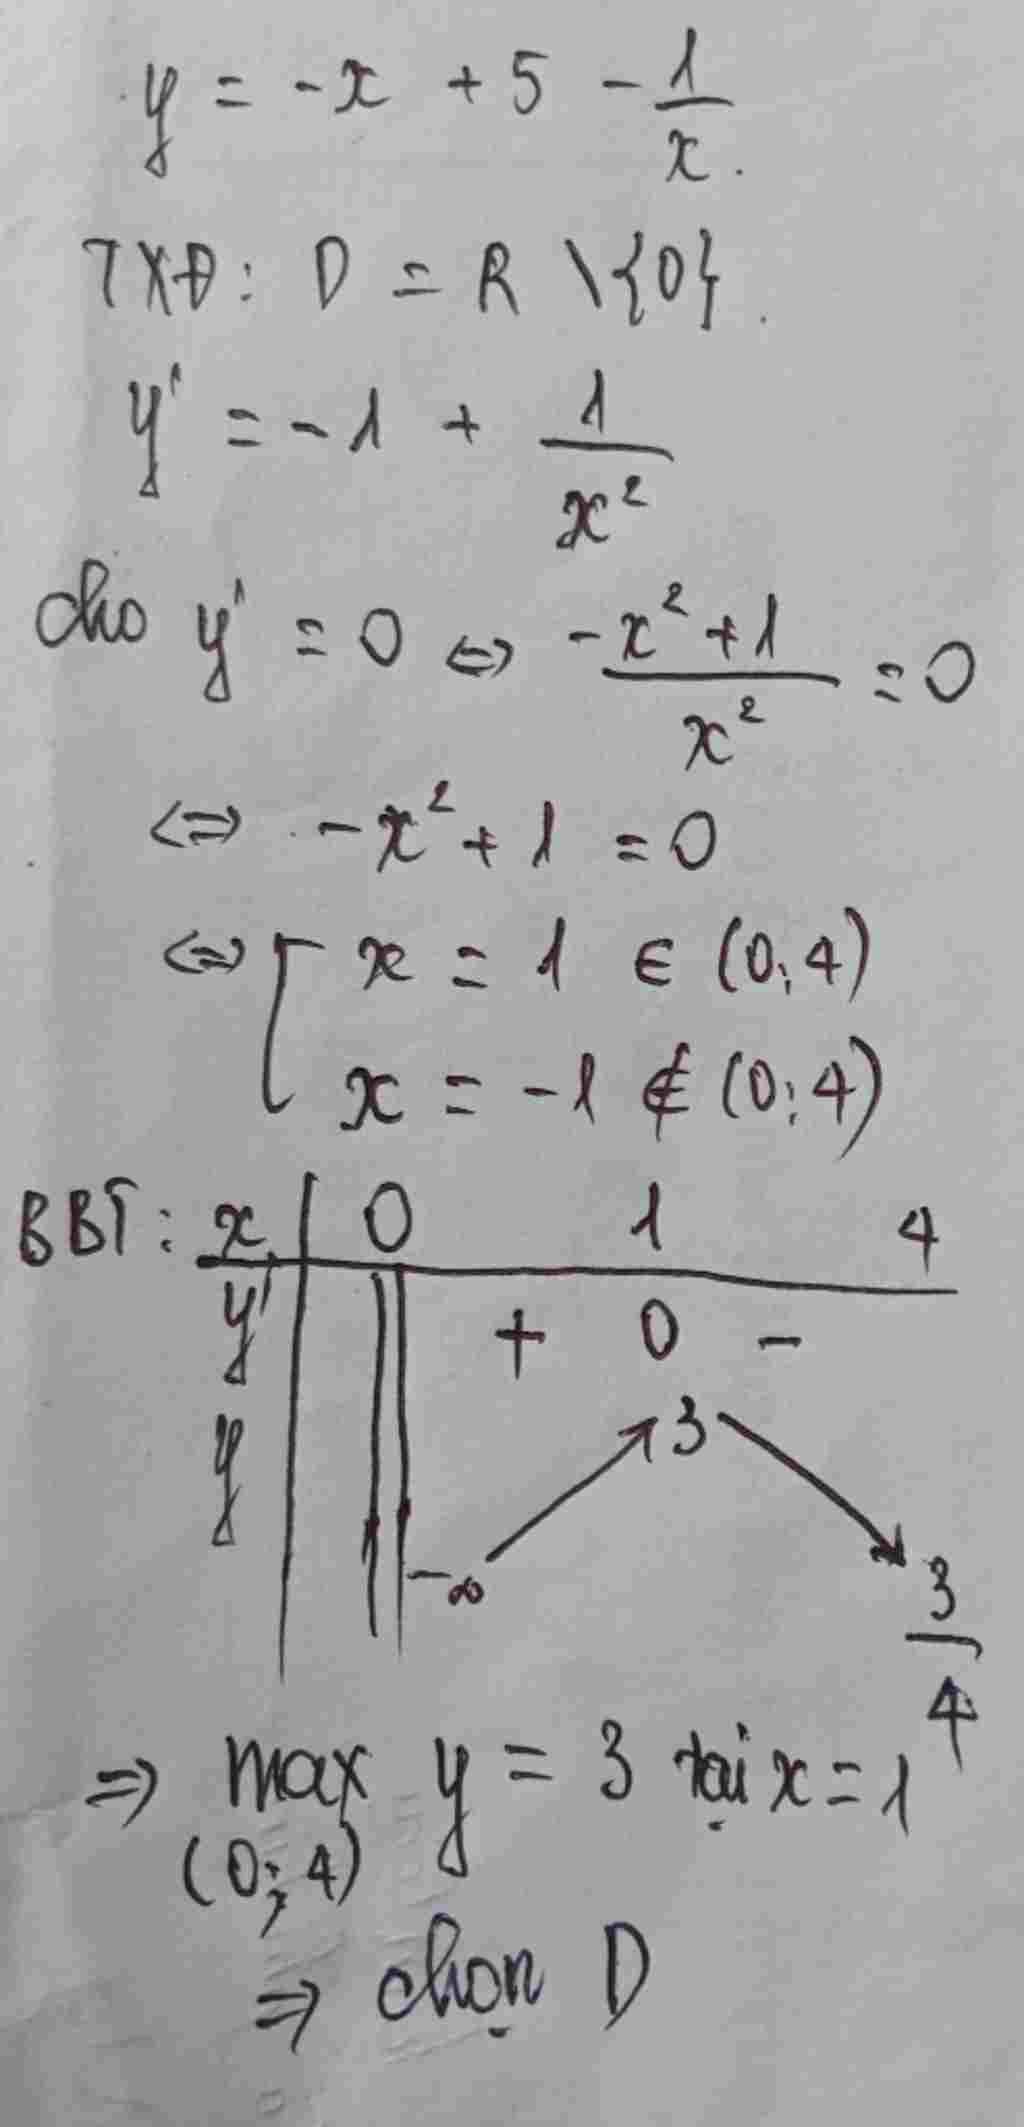 y = -x + 5 - 1/x.
TXĐ: D = R \ {0}.
y' = -1 + 1/x²
cho y' = 0 ⇔ (-x² + 1)/x² = 0
⇔ -x² + 1 = 0
⇔ [ x = 1 ∈ (0; 4)
x = -1 ∉ (0; 4)
BBT: x | 0 1 4
y' || + 0 -
y || -∞ ↗ 3 ↘ 3/4
⇒ max y = 3 tại x = 1
(0; 4)
⇒ chọn D